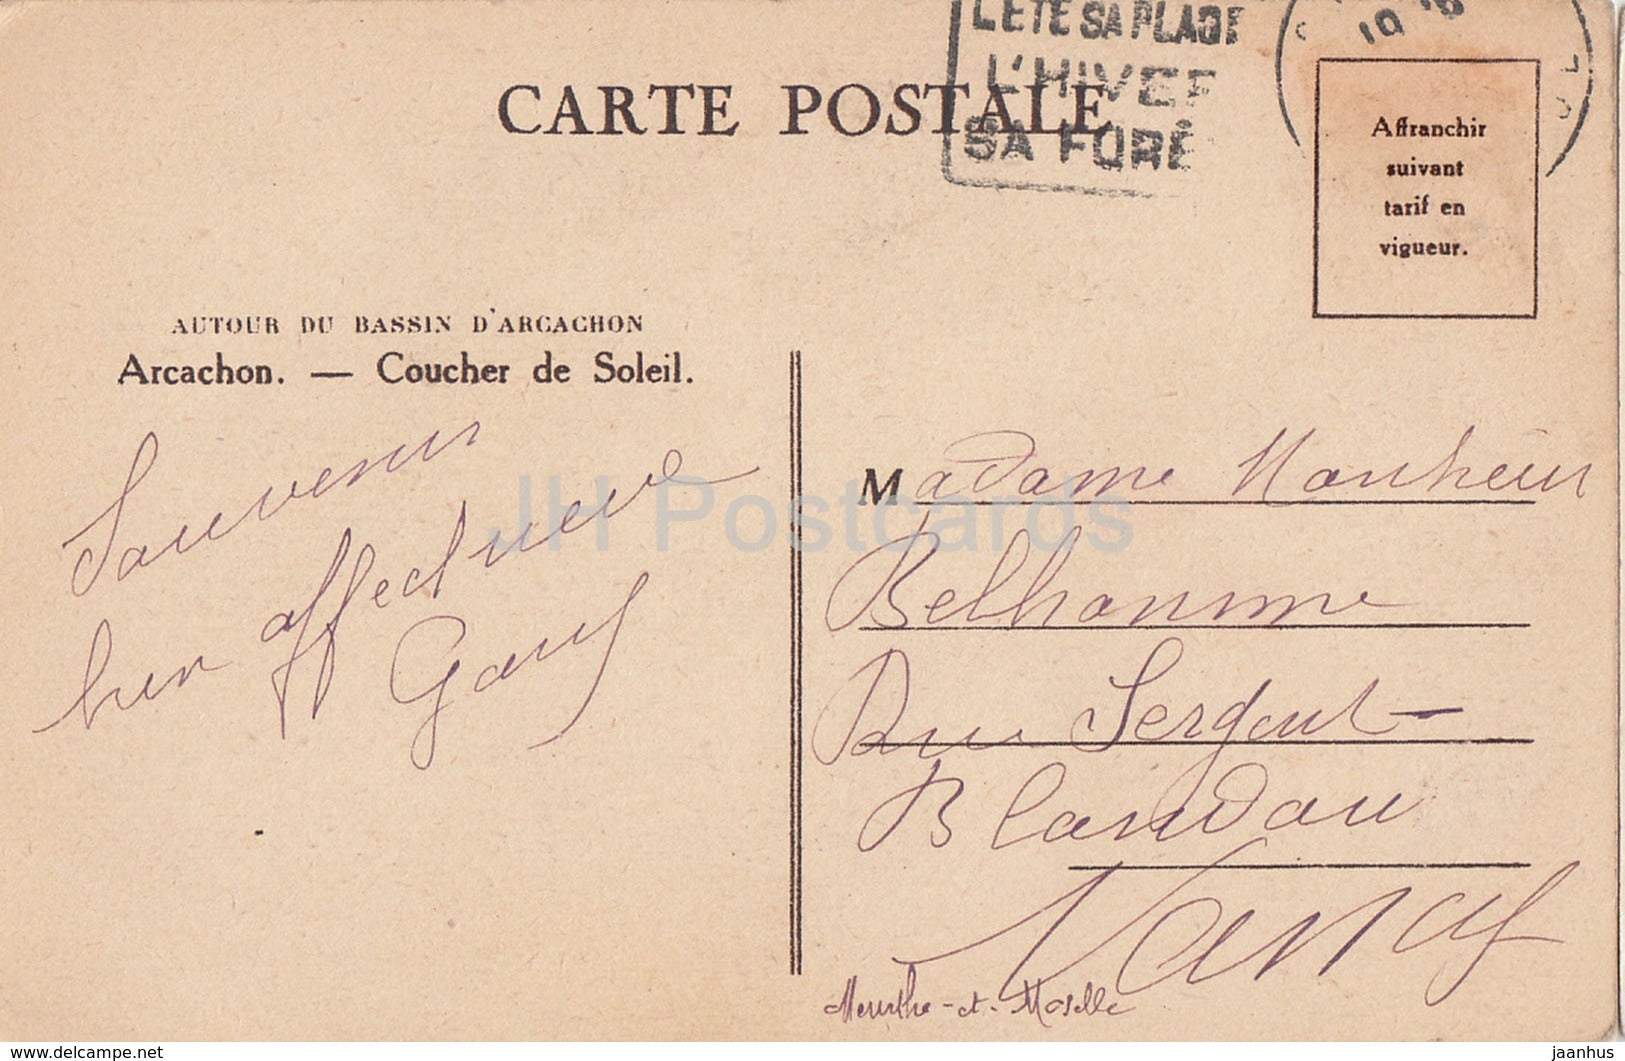 L'ETE SA PLAGE
L'HIVER
SA FORÊ
10
CARTE POSTALE
Affranchir
suivant
tarif en
vigueur.
AUTOUR DU BASSIN D'ARCACHON
Arcachon. — Coucher de Soleil.
Souvenir
bien affectueux
Madame
Belhomme
Rue Sergent
Blandau
Meurthe-et-Moselle
JH Postcards
jaanhus.delcampe.net
jaanhus